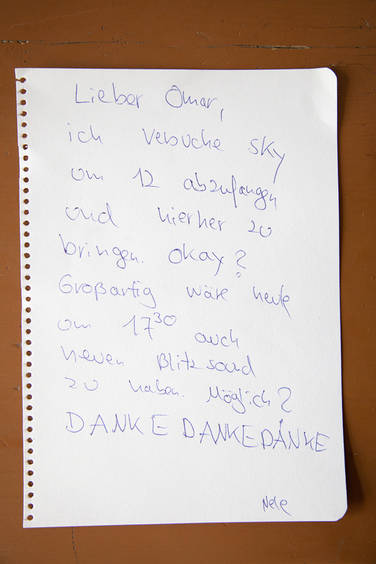 Lieber Omar,
ich versuche sky
um 12 abzufangen
und hierher zu
bringen. Okay?
Großartig wäre heute
um 17³⁰ auch
neuen Blitzsand
zu haben. Möglich?
DANKE DANKE DANKE
Nele